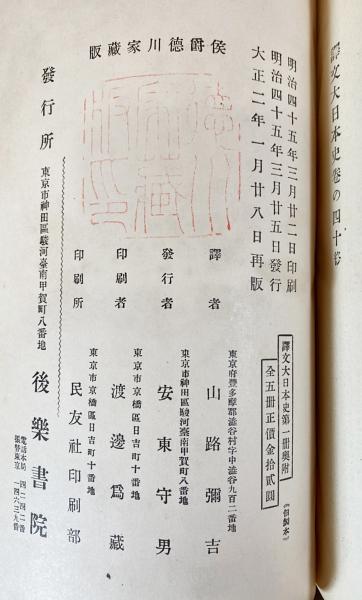 譯文大日本史卷の四十卷
侯爵德川家藏版
明治四十五年三月廿二日印刷
明治四十五年三月廿五日發行
大正二年一月廿八日再版
譯文大日本史第一冊奧附
全五冊正價金拾貳圓
譯者
東京府豐多摩郡澁谷村字中澁谷九百二番地
山路彌吉
發行者
東京市神田區駿河臺南甲賀町八番地
安東守男
印刷者
東京市京橋區日吉町十番地
渡邊爲藏
印刷所
東京市京橋區日吉町十番地
民友社印刷部
發行所
東京市神田區駿河臺南甲賀町八番地
後樂書院